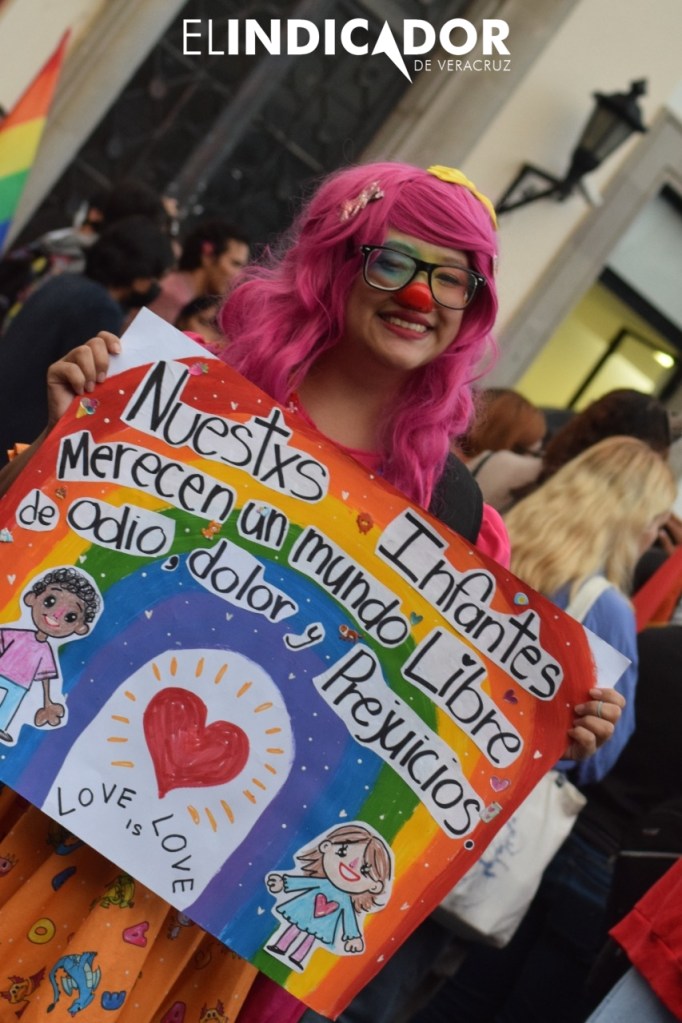 ELINDICADOR
DE VERACRUZ
Nuestxs Infantes
Merecen un mundo Libre
de odio, dolor y Prejuicios.
LOVE
is
LOVE